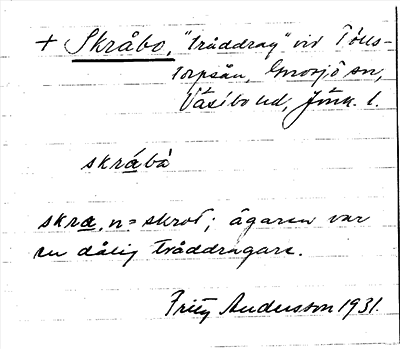 + Skråbo, "tråddrag" vid Tölls-
torpsån, Gnosjö sn,
Västbo hd, Jönk. l.
skråbo
skra, n = skrot; ägaren var
en dålig tråddragare.
Fritz Andersson 1931.